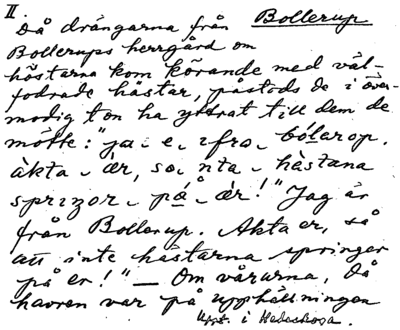 II.
Då drängarna från Bollerup
Bollerups herrgård om
höstarna kom körande med väl-
fodrade hästar, påstods de i över-
modig ton ha yttrat till dem de
mötte: "ja e ifra bólarop.
äkta ér, so nta hèstana
sprizor på ér!" Jag är
från Bollerup. Akta er, så
att inte hästarna springer
på er!" — Om vårarna, då
havren var på upphällningen
Uppt. i